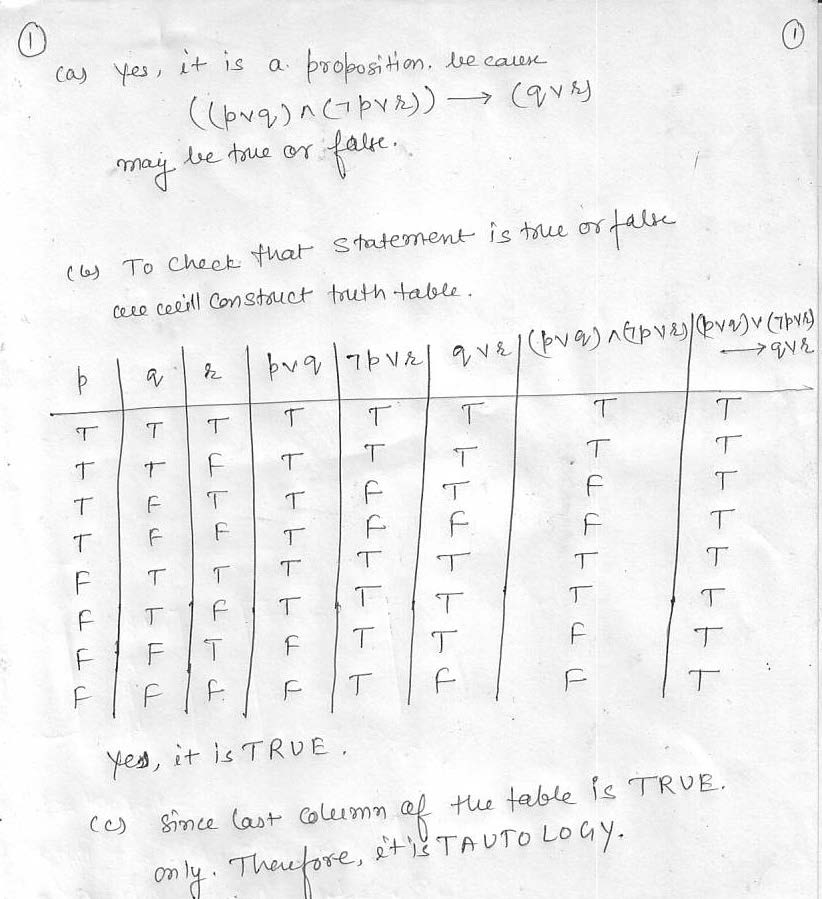 ① ①
(a) Yes, it is a proposition. because
((p∨q) ∧ (¬p∨r)) → (q∨r)
may be true or false.
(b) To Check that Statement is true or false
we will Construct truth table.
p | q | r | p∨q | ¬p∨r | q∨r | (p∨q) ∧ (¬p∨r) | (p∨q) ∨ (¬p∨r)
→ q∨r
T T T T T T T T
T T F T T T T T
T F T T F T F T
T F F T F F F T
F T T T T T T T
F T F T T T T T
F F T F T T F T
F F F F T F F T
Yes, it is TRUE.
(c) Since last column of the table is TRUE.
only. Therefore, it is TAUTOLOGY.